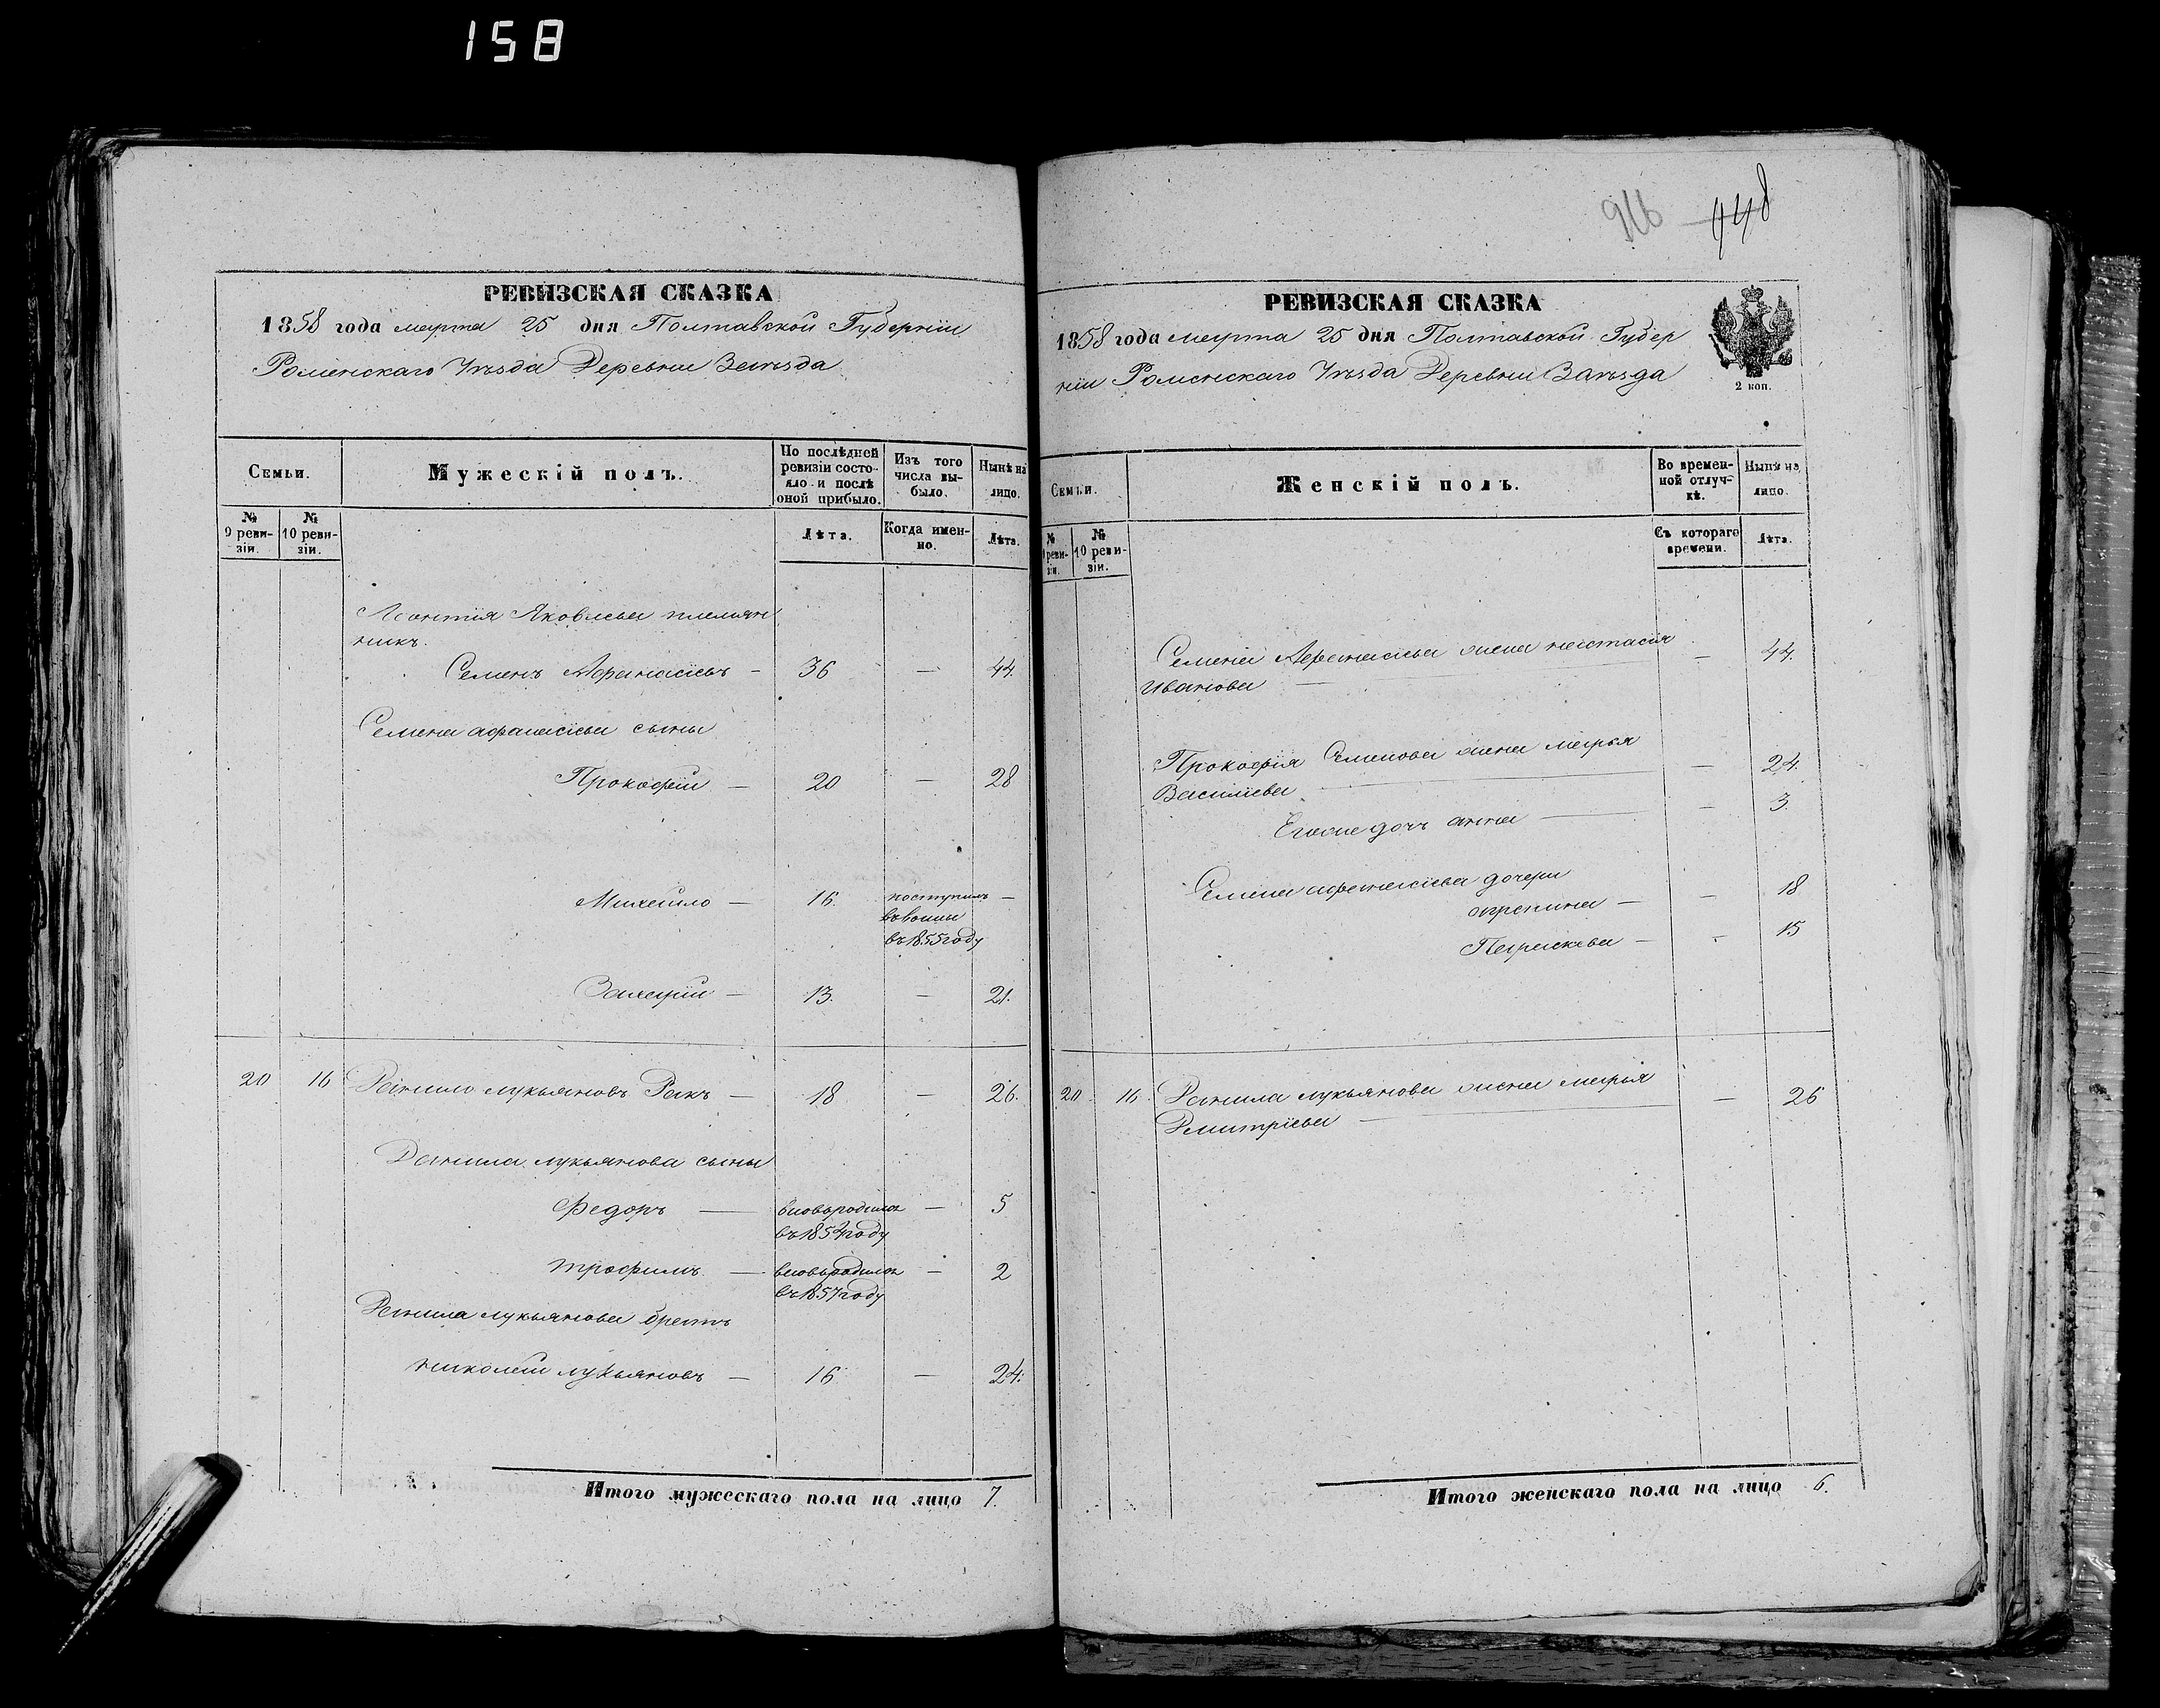 158
РЕВИЗСКАЯ СКАЗКА
1858 года марта 25 дня Полтавской Губерніи
Роменскаго Уѣзда Деревни Заѣзда
Семьи.
Мужескій полъ.
По послѣдней ревизіи состояло и послѣ оной прибыло.
Изъ того числа выбыло.
Нынѣ на лицо.
№ 9 ревизіи.
№ 10 ревизіи.
Лѣта.
Когда именно.
Лѣта.
Леонтія Яковлева племян
никъ.
Семенъ Афанасіевъ — 36 — 44.
Семена афанасіева сыны
Прокофій — 20 — 28
Михайло — 16. поступилъ —
въ 1855 году
Захарій — 13. — 21.
20 16 Данило лукьяновъ Ракъ — 18 — 26.
Данила лукьянова сыны
Федоръ — вновьродился — 5
въ 1854 году
трофимъ — вновьродился — 2
въ 1857 году
Данила лукьянова братъ
николай лукьяновъ — 16 — 24.
Итого мужескаго пола на лицо 7.
948
РЕВИЗСКАЯ СКАЗКА
1858 года марта 25 дня Полтавской Губер
ніи Роменскаго Уѣзда Деревни Заѣзда
2 коп.
Семьи.
Женскій полъ.
Во временной отлучкѣ.
Нынѣ на лицо.
№ 9 ревизіи.
№ 10 ревизіи.
Съ котораго времени.
Лѣта.
Семена Афанасіева жена настасія — 44.
Иванова —
Прокофія Семенова жена марья — 24.
Василіева —
Егоже дочь анна — — 3.
Семена афанасіева дочери
— — 18
Параскева — — 15
20 16. Данила лукьянова жена марья — 26
Дмитріева —
Итого женскаго пола на лицо 6.